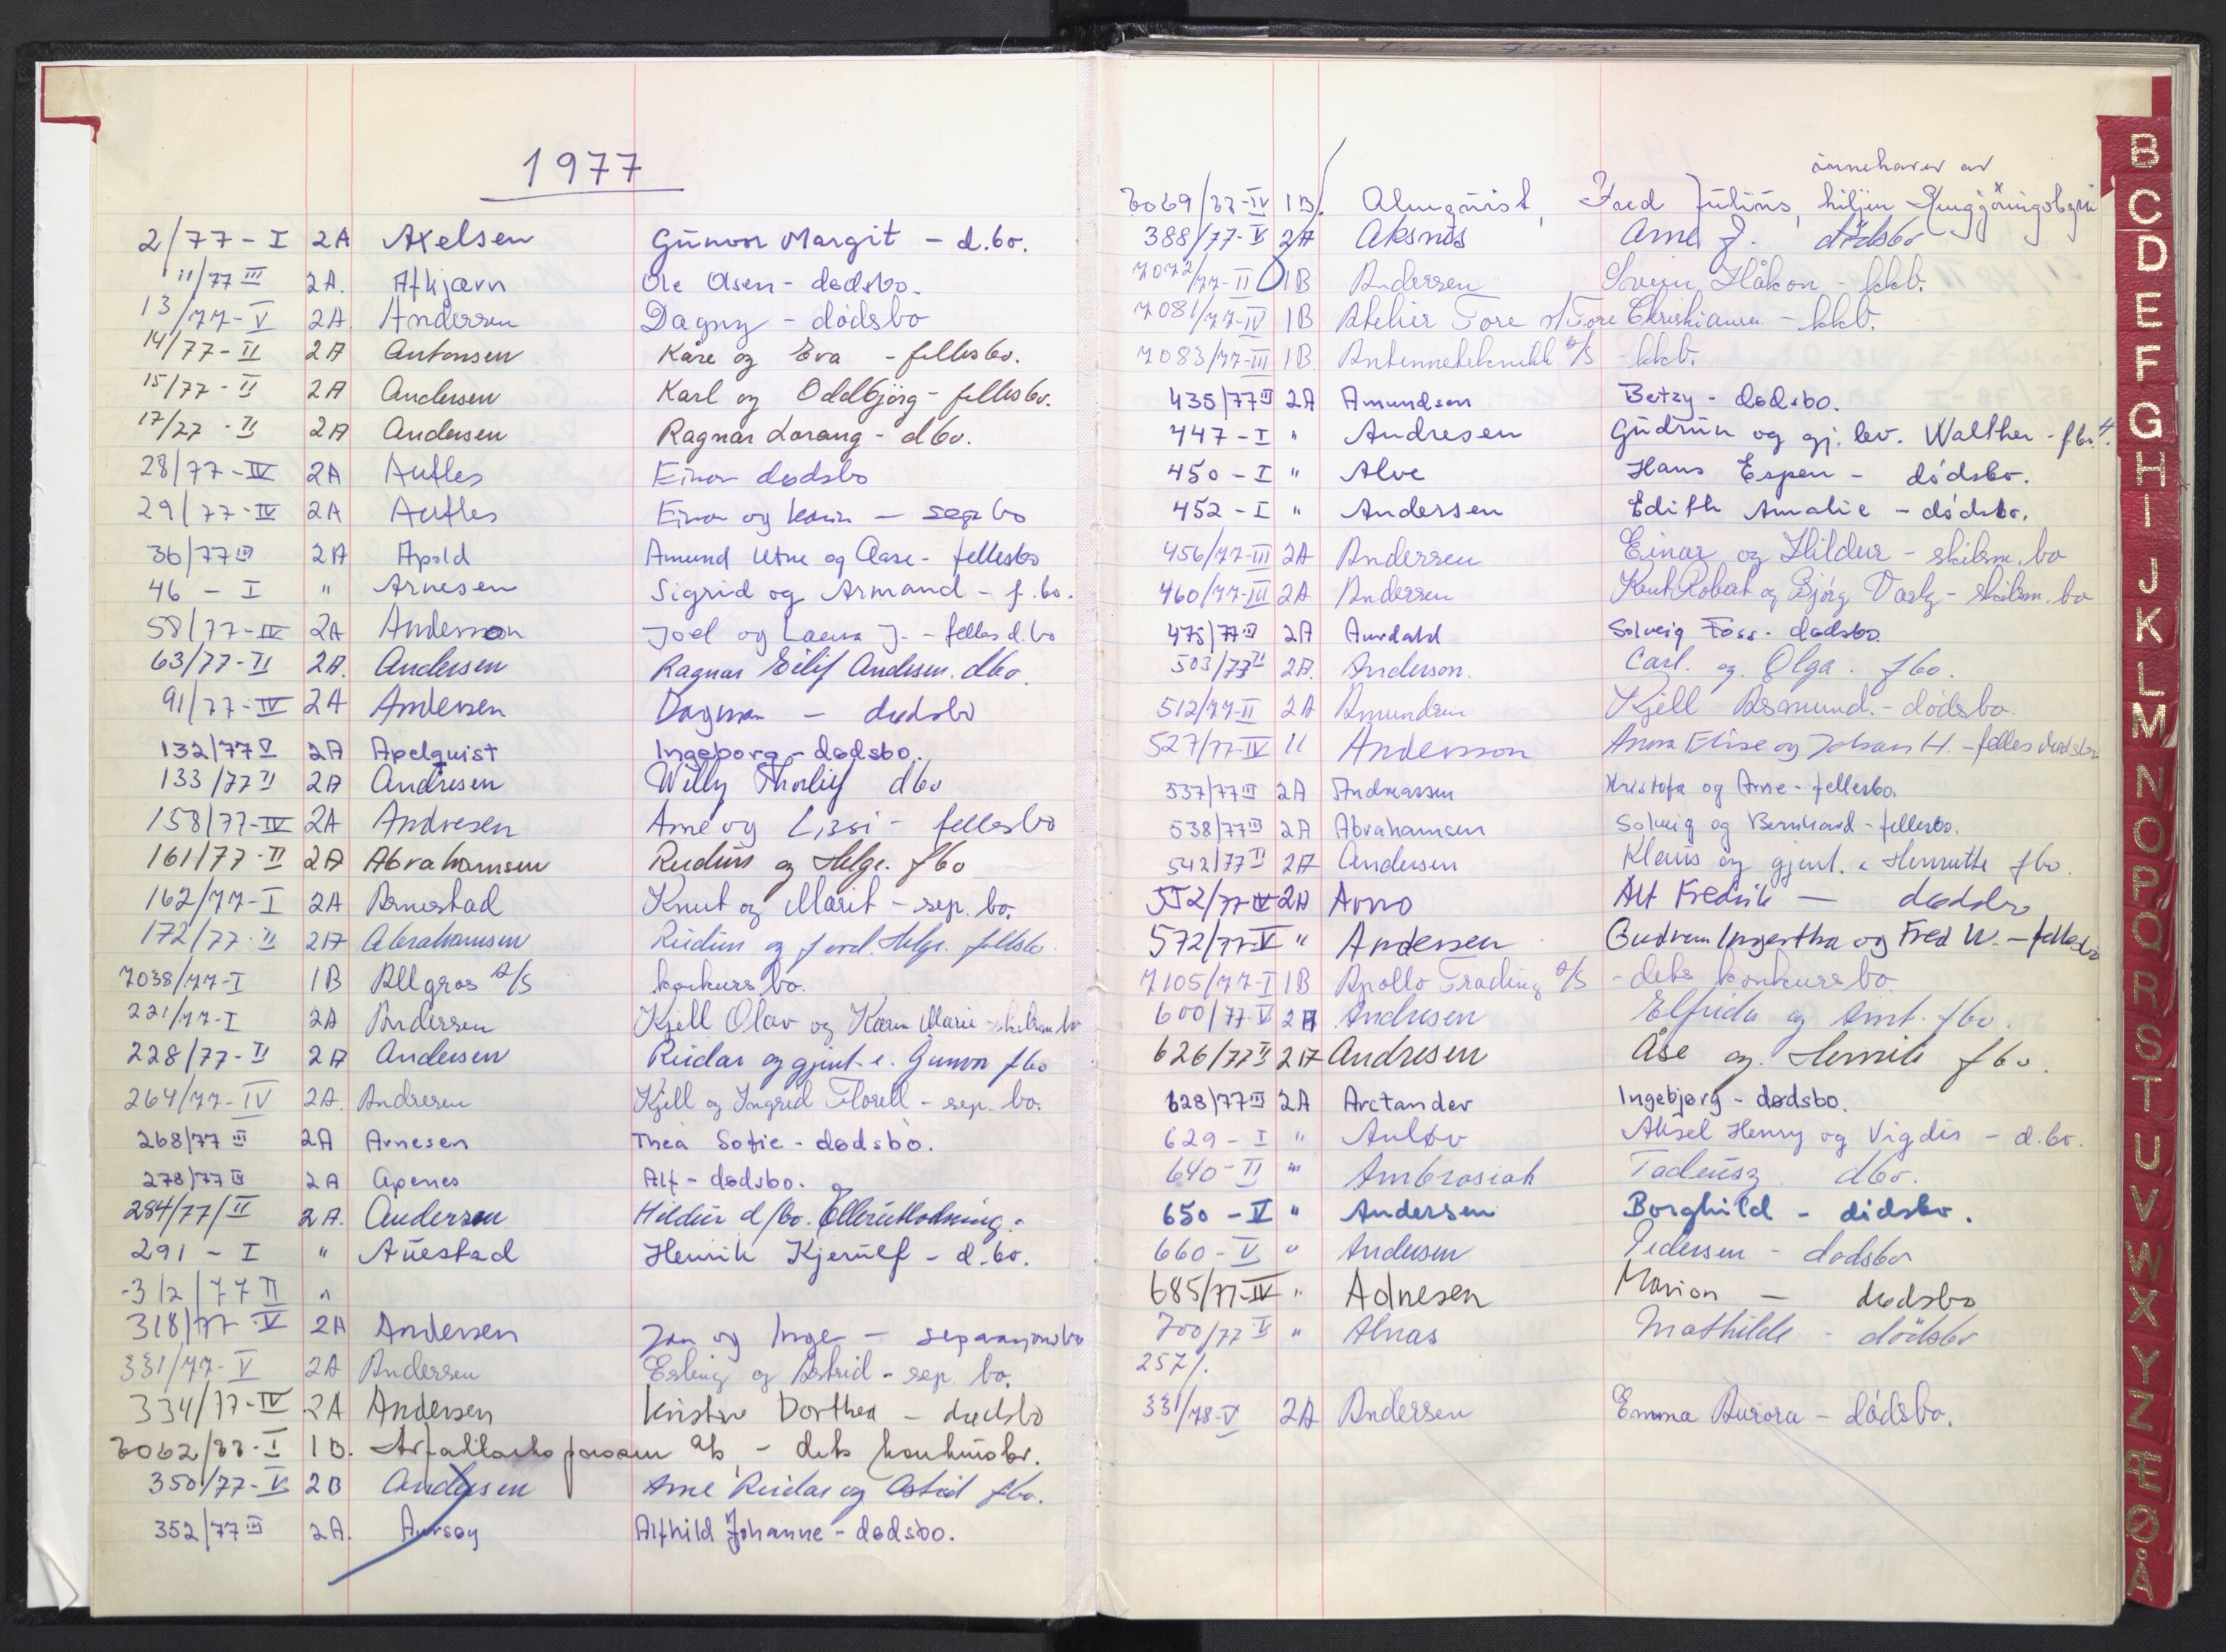 1977
2/77-I 2A Axelsen Gunvor Margit - d.bo.
11/77 III 2A. Afkjærn Ole Olsen - dødsbo.
13/77-V 2A Andersen Dagny - dødsbo
14/77-II 2A Antonsen Kåre og Eva - fellesbo.
15/77-II 2A Andersen Karl og Oddbjörg - fellesbo.
17/27-II 2A Andersen Ragnar Lorang - dbo.
28/77-IV 2A Aufles Einar dødsbo
29/77-IV 2A Aufles Einar og Karin - sepbo
36/77 III 2A Apold Amund Utne og Aase - fellesbo
46 - I " Arnesen Sigrid og Armand - f.bo.
58/77-IV 2A Andersson Joel og Laura J. - felles d.bo
63/77-II 2A. Andersen Ragnar Eilif Andersen. dbo.
91/77-IV 2A Andersen Dagmar - dødsbo
132/77 V 2A Apelquist Ingeborg - dødsbo.
133/77 II 2A Andresen Willy Thorleif dbo
158/77-IV 2A Andresen Arne og Lissi - fellesbo
161/77-II 2A Abrahamsen Reidun og Helge. fbo
162/77-I 2A Arnestad Knut og Marit - sep. bo.
172/77-II 2A Abrahamsen Reidun og ford. Helge. fellesbo.
7038/77-I 1B Allgros A/S konkursbo.
221/77-I 2A Andersen Kjell Olav og Karin Marie - skilsm.bo
228/77-II 2A Andersen Reidar og gjenl. e. Gunvor fbo
264/77-IV 2A. Andresen Kjell og Ingrid Florell - sep. bo.
268/77 III 2A Arnesen Thea Sofie - dødsbo.
278/77 III 2A Apenes Alf - dødsbo.
284/77/II 2A. Andersen Hildur d/bo. og Etterutlodning.
291 - I " Auestad Henrik Kjerulf - d.bo.
-312/77 II "
318/77-V 2A Andersen Jan og Inger - separasjonsbo
331/77-V 2A Andersen Esling og Astrid - sep. bo.
334/77-IV 2A Andersen Kristine Dorthea - dødsbo
7062/77-I 1B. A/S, - dets konkursbo.
350/77-V 2B Andersen Arne Reidar og Astrid fbo.
352/77 III 2A. Aursøy Alfhild Johanne - dødsbo.
innehaver av
7069/77-IV 1B. Almqvist, Fred Julius, Liljen
388/77-V 2A Aksnes Arne J. dødsbo
7072/77-II 1B Andersen Svein Håkon - kkb.
7081/77-IV 1B Atelier Tore v/Tore Christiansen - kkb.
7083/77-III 1B. Antenneteknikk A/S - kkb.
435/77 III 2A Amundsen Betzy - dødsbo.
447-I " Andresen Gudrun og gj. lev. Walther - f.bo.
450-I " Alve Hans Espen - dødsbo.
452-I " Anderssen Edith Amalie - dødsbo.
456/77-III 2A Andersen Einar og Hildur - skilsm. bo
460/77-III 2A Andersen Kent Robert og Bjørg Varly - skilsm. bo
475/77 III 2A Aurdahl Solveig Foss - dødsbo.
503/77 II 2A. Anderson. Carl. og Olga. fbo.
512/77-II 2A Amundsen Kjell Asmund. - dødsbo.
527/77-IV 11 Andersson Anna Elise og Johan H. - felles dødsbo
537/77 III 2A Andreassen Kristofa og Arne - fellesbo.
538/77 III 2A Abrahamsen Solveig og Bernhard - fellesbo.
542/77 II 2A Andersen Klaus og gjenl. e Henriette fbo.
552/77-IV 2A Arno Alf Fredrik - dødsbo
572/77-V " Andersen Gudrun Ingertha og Fred W. - fellesbo
7105/77-I 1B Apollo Trading A/S - dets konkursbo
600/77-V 2A Andresen Elfrida og Arnt. fbo.
626/77 II 2A Andresen Åse og. Henrik fbo.
628/77 III 2A Arctander Ingebjørg - dødsbo.
629-I " Auløv Aksel Henry og Vigdis - d.bo.
640-II " Ambrosiak Tadeusz dbo.
650-V " Andersen Borghild - dødsbo.
660-V " Andersen Pedersen - dødsbo
685/77-IV " Adnesen Marion - dødsbo
700/77 V " Alnas Mathilde - dödsbo
257/.
331/78-V 2A Andersen Emma Aurora - dødsbo.
B
C
D
E
F
G
H
I
J
K
L
M
N
O
P
Q
R
S
T
U
V
W
X
Y
Z
Æ
Ø
Å